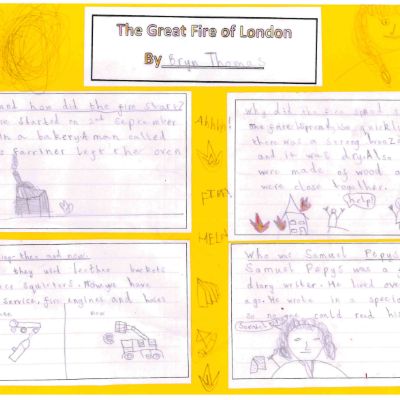 The Great Fire of London
By Bryn Thomas
and how did the fire start?
started on 2nd September
in a bakery. A man called
farriner left the oven
Why did the fire spread
the fire spread so quickly
there was a strong
and it was dry. Also
were made of wood a
were close together.
help!
then and now
they used leather buckets
squirters. Now we have
service, fire engines and hoses
now
Who was Samuel Pepys
Samuel Pepys was a f
diary writer. He lived over
ago. He wrote in a specia
so no one could read his